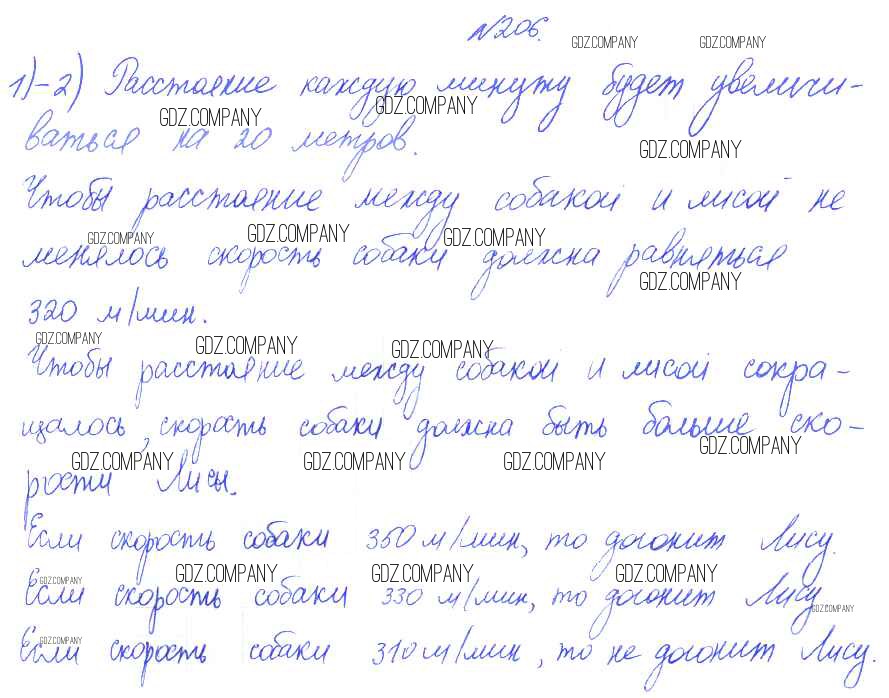 №206.
GDZ.COMPANY GDZ.COMPANY
1)-2) Расстояние каждую минуту будет увеличи-
GDZ.COMPANY GDZ.COMPANY
ваться на 20 метров.
GDZ.COMPANY
Чтобы расстояние между собакой и лисой не
GDZ.COMPANY GDZ.COMPANY GDZ.COMPANY
менялось скорость собаки должна равняться
GDZ.COMPANY
320 м/мин.
GDZ.COMPANY GDZ.COMPANY GDZ.COMPANY
Чтобы расстояние между собакой и лисой сокра-
щалось, скорость собаки должна быть больше ско-
GDZ.COMPANY
GDZ.COMPANY GDZ.COMPANY GDZ.COMPANY
рости Лисы.
Если скорость собаки 350 м/мин, то догонит Лису.
GDZ.COMPANY GDZ.COMPANY GDZ.COMPANY GDZ.COMPANY
Если скорость собаки 330 м/мин, то догонит Лису
GDZ.COMPANY
GDZ.COMPANY
Если скорость собаки 310 м/мин, то не догонит Лису.